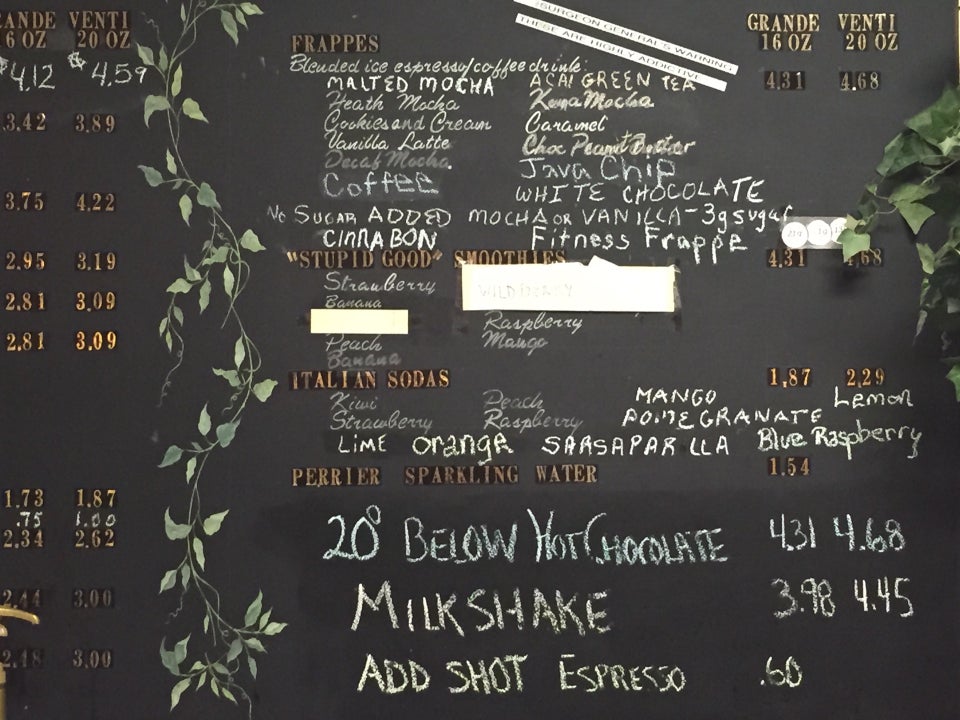 ANDE VENTI
6 OZ 20 OZ
$4.12 $4.59
3.42 3.89
3.75 4.22
2.95 3.19
2.81 3.09
2.81 3.09
1.73 1.87
.75 1.00
2.34 2.62
2.44 3.00
2.48 3.00
SURGEON GENERAL'S WARNING
THESE ARE HIGHLY ADDICTIVE
GRANDE VENTI
16 OZ 20 OZ
FRAPPES
Blended ice espresso/coffee drink:
MALTED MOCHA ACAI GREEN TEA 4.31 4.68
Heath Mocha Kona Mocha
Cookies and Cream Caramel
Vanilla Latte Choc Peanut Butter
Decaf Mocha Java Chip
Coffee WHITE CHOCOLATE
No SUGAR ADDED MOCHA OR VANILLA-3g sugar
CINNABON Fitness Frappe
"STUPID GOOD" SMOOTHIES 4.31 4.68
Strawberry WILDBERRY
Banana
Raspberry
Peach Mango
Banana
ITALIAN SODAS 1.87 2.29
Kiwi Peach MANGO Lemon
Strawberry Raspberry POMEGRANATE
LIME orange SARSAPARILLA Blue Raspberry
PERRIER SPARKLING WATER 1.54
20° BELOW HOT CHOCOLATE 4.31 4.68
MILKSHAKE 3.98 4.45
ADD SHOT ESPRESSO .60